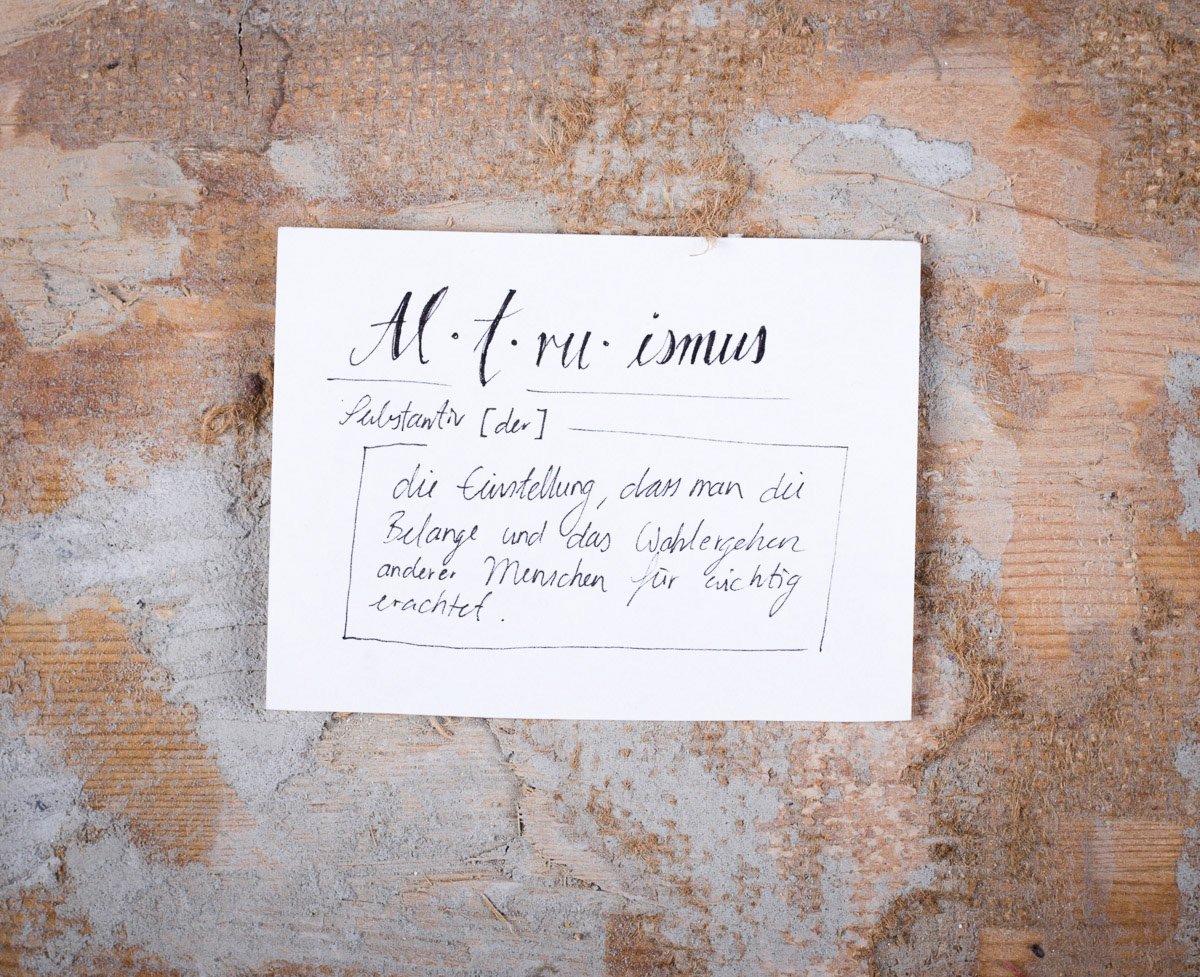 Al·t·ru·ismus
Substantiv [der]
die Einstellung, dass man die
Belange und das Wohlergehen
anderer Menschen für wichtig
erachtet.